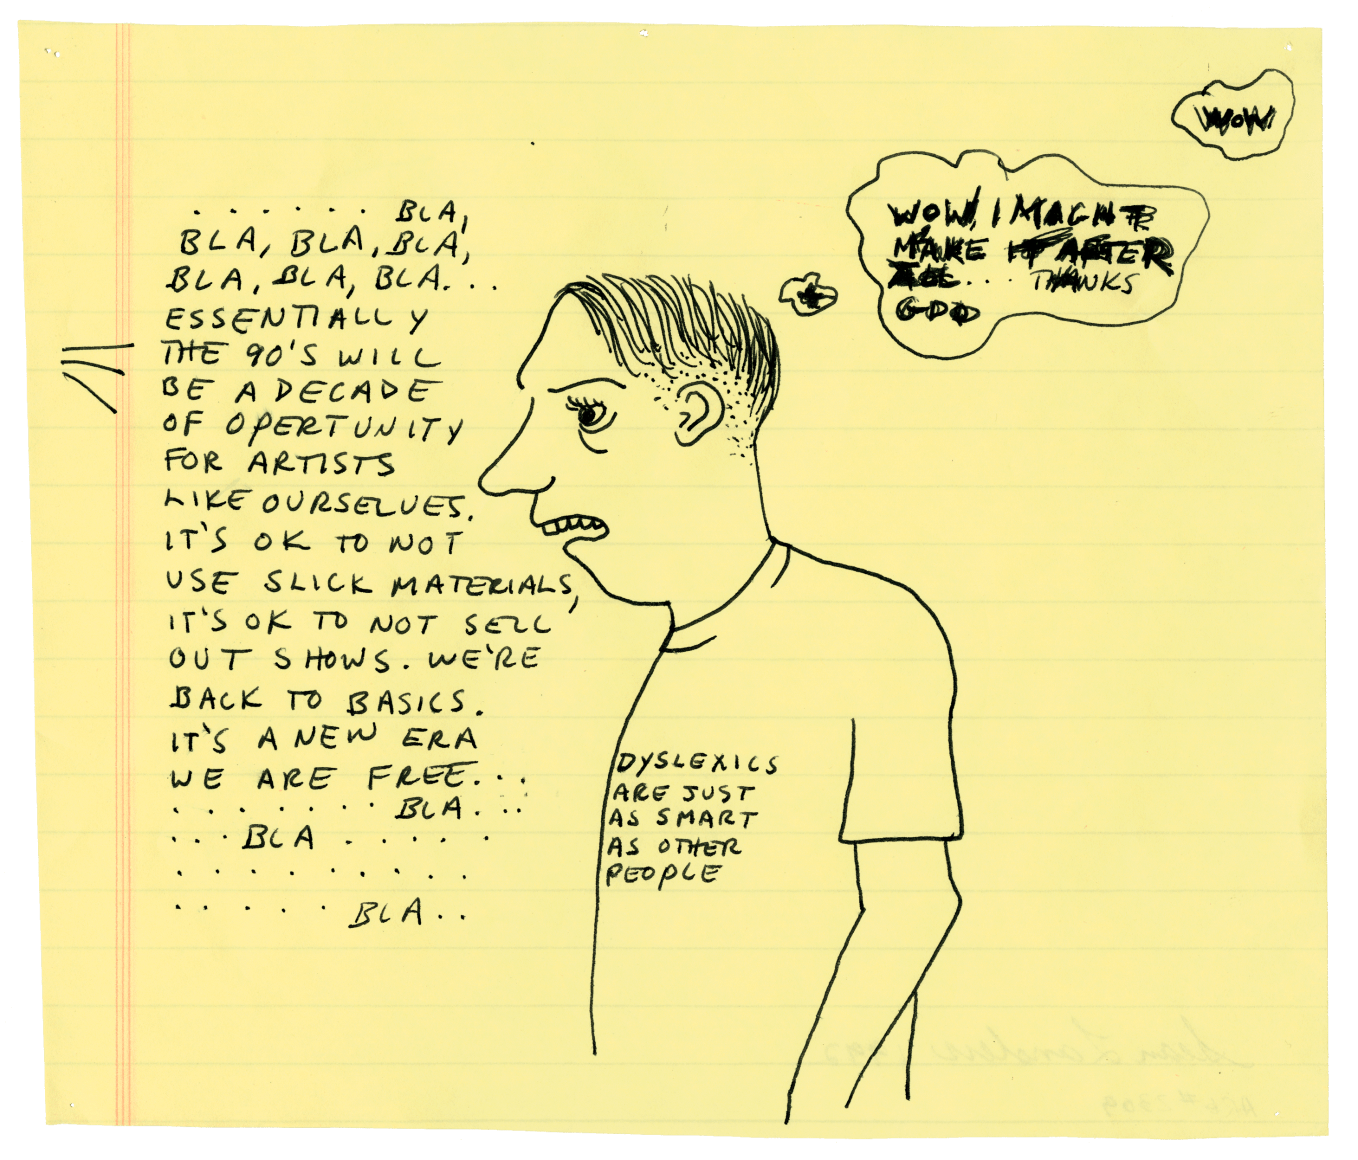 . . . . . . BLA,
BLA, BLA, BLA,
BLA, BLA, BLA...
ESSENTIALLY
THE 90'S WILL
BE A DECADE
OF OPERTUNITY
FOR ARTISTS
LIKE OURSELVES.
IT'S OK TO NOT
USE SLICK MATERIALS,
IT'S OK TO NOT SELL
OUT SHOWS. WE'RE
BACK TO BASICS.
IT'S A NEW ERA
WE ARE FREE...
. . . . . . . BLA. . .
. . . BLA . . . . .
. . . . . . . . .
. . . . . BLA . .
WOW
WOW, I
MAKE AFTER
... THANKS
DYSLEXICS
ARE JUST
AS SMART
AS OTHER
PEOPLE
Sean Landers